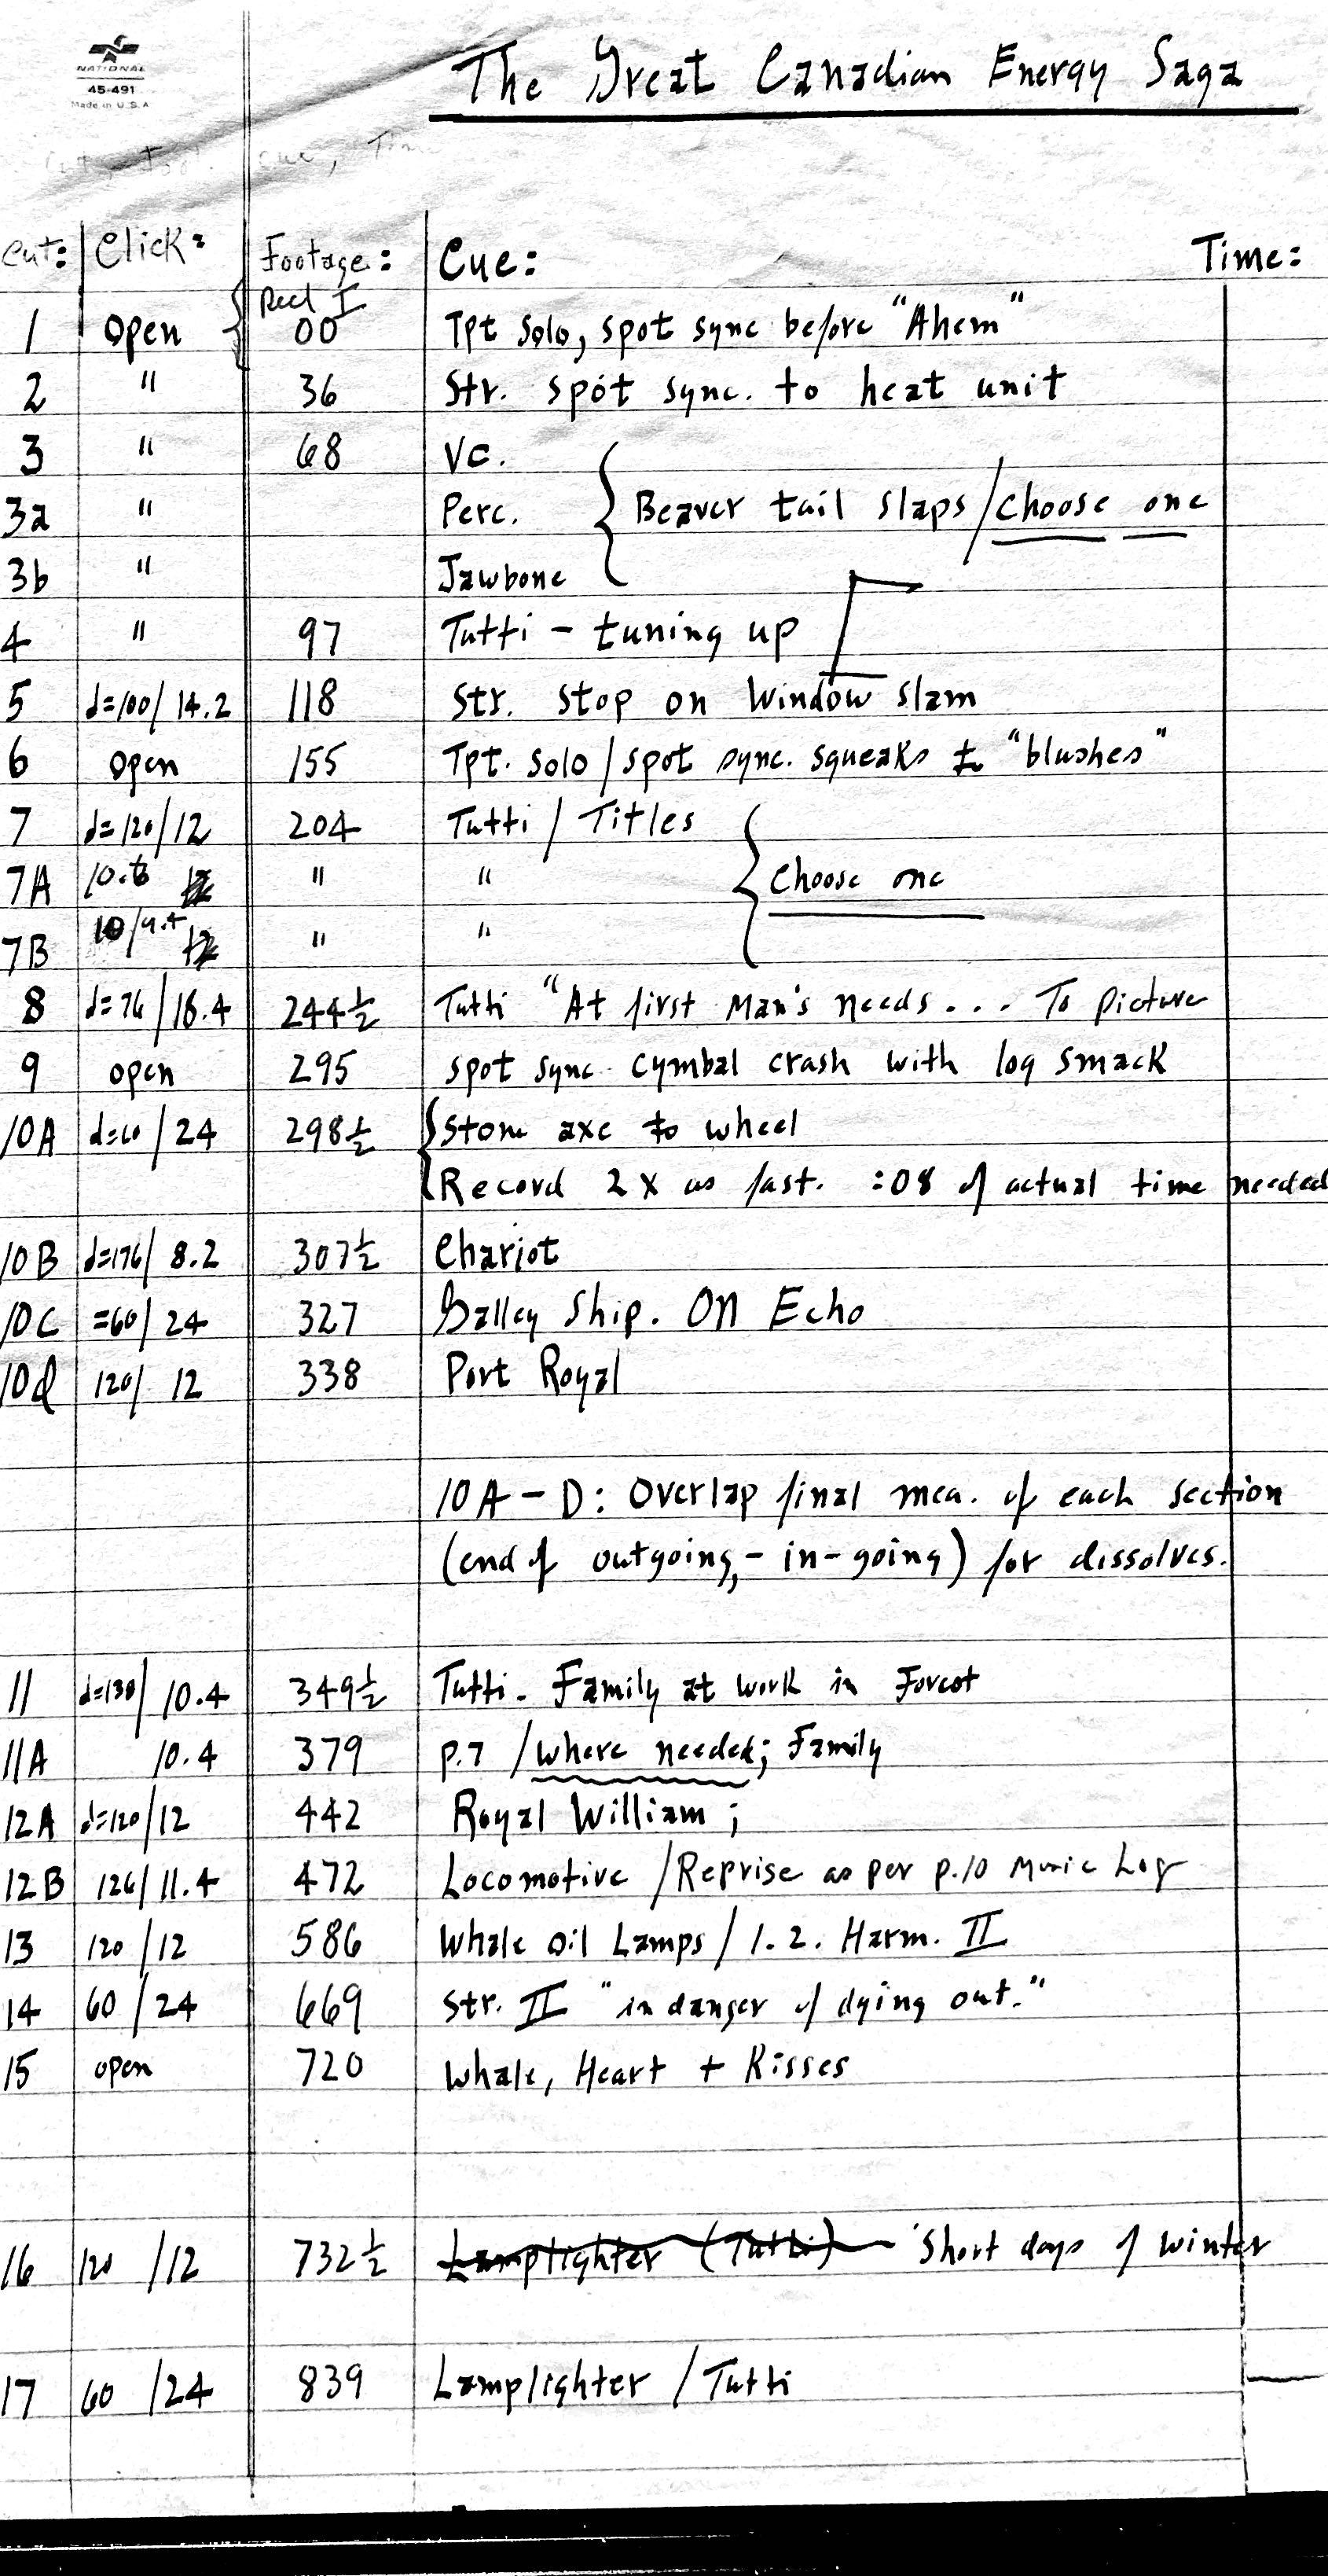 NATIONAL
45-491
Made in U.S.A.
The Great Canadian Energy Saga
cue, Time
Cut: Click: Footage: Cue: Time:
Reel I
1 open 00 Tpt solo, spot sync before "Ahem"
2 " 36 Str. spot sync. to heat unit
3 " 68 Vc.
3a " Perc. Beaver tail slaps / choose one
3b " Jawbone
4 " 97 Tutti - tuning up
5 d=100/14.2 118 Str. stop on window slam
6 open 155 Tpt. solo / spot sync. squeaks to "blushes"
7 d=120/12 204 Tutti / Titles
7A 10.6 " " choose one
7B 10/9.4 " "
8 d=76/18.4 244½ Tutti "At first Man's needs... To picture
9 open 295 spot sync. cymbal crash with log smack
10A d=60/24 298½ Stone axe to wheel
Record 2X as fast. :08 of actual time needed
10B d=176/8.2 307½ Chariot
10C =60/24 327 Galley Ship. ON Echo
10d 120/12 338 Port Royal
10A-D: Overlap final mea. of each section
(end of outgoing, - in-going) for dissolves.
11 d=138/10.4 349½ Tutti - Family at work in Forest
11A 10.4 379 p.7 / where needed; Family
12A d=120/12 442 Royal William;
12B 126/11.4 472 Locomotive / Reprise as per p.10 Music Log
13 120/12 586 Whale oil Lamps / 1.2. Harm. II
14 60/24 669 Str. II "in danger of dying out."
15 open 720 Whale, Heart + Kisses
16 120/12 732½ Lamplighter (Tutti) Short days of winter
17 60/24 839 Lamplighter / Tutti